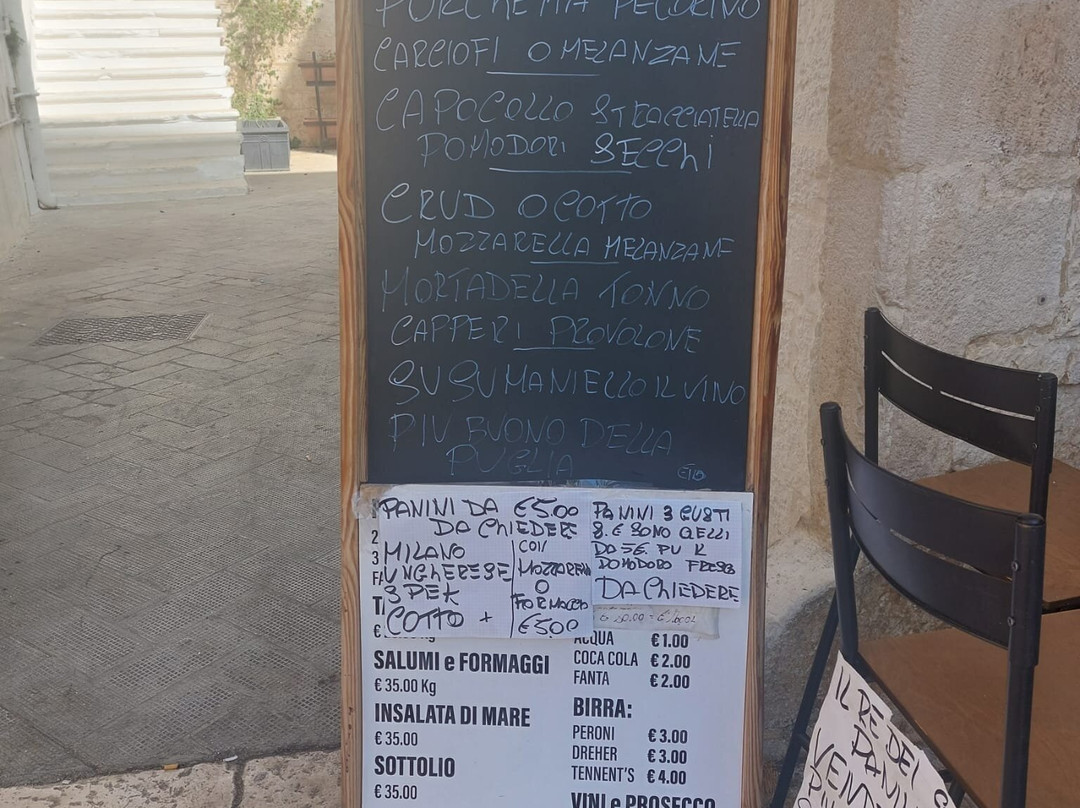 PORCHETTA PECORINO
CARCIOFI O MELANZANE
CAPOCOLLO STRACCIATELLA
POMODORI SECCHI
CRUD O COTTO
MOZZARELLA MELANZANE
MORTADELLA TONNO
CAPPERI PROVOLONE
SUSUMANIELLO IL VINO
PIU BUONO DELLA
PUGLIA
PANINI DA €5.00
DA CHIEDERE
MILANO
UNGHERESE
SPEK
COTTO +
CON
MOZZARELLA
O
FORMAGGIO
€500
PANINI 3 GUSTI
8.€ SONO QELLI
DA 5€. PU K
POMODORO FRESCO
DA CHIEDERE
SALUMI e FORMAGGI
€ 35.00 Kg
INSALATA DI MARE
€ 35.00
SOTTOLIO
€ 35.00
ACQUA € 1.00
COCA COLA € 2.00
FANTA € 2.00
BIRRA:
PERONI € 3.00
DREHER € 3.00
TENNENT'S € 4.00
VINI e PROSECCO
IL RE DEI
PANI
VEND